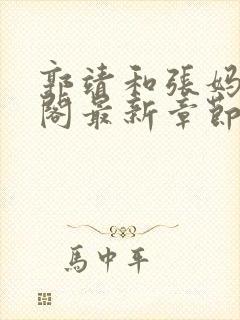 郭靖和張媽
閣最新章節
馬中平